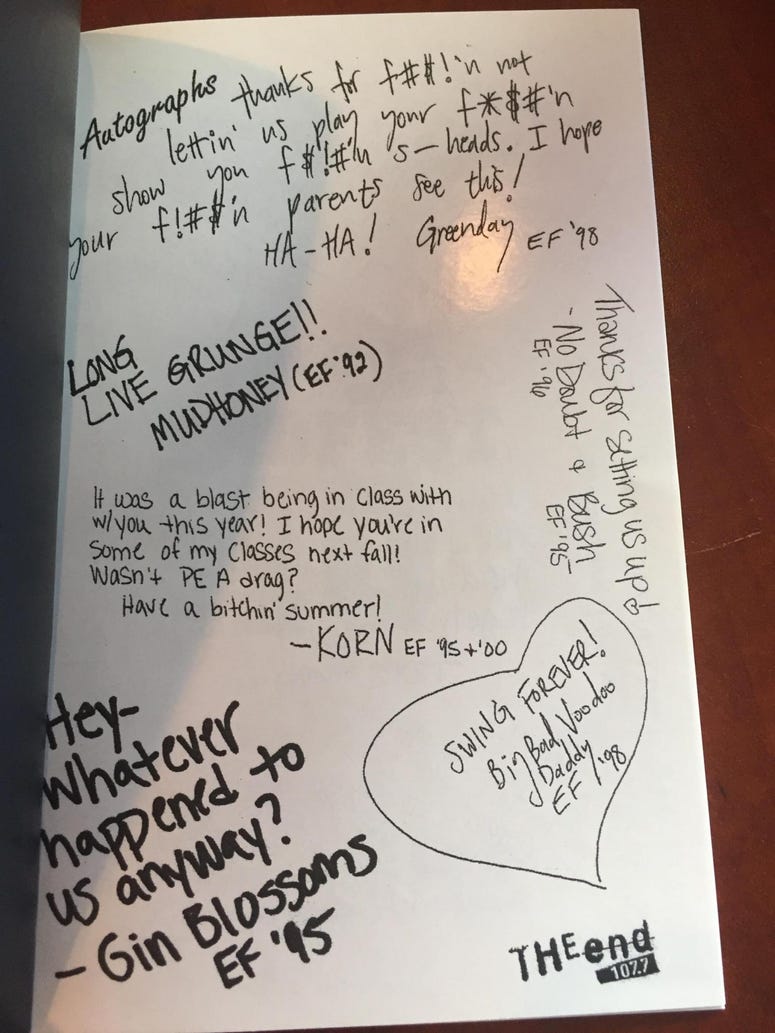 Autographs
thanks for f#$!'n not
lettin' us play your f*$#'n
show you f$!#'n s—heads. I hope
your f!#$'n parents see this!
HA-HA! Greenday EF '98
LONG
LIVE GRUNGE!!.
MUDHONEY (EF '92)
Thanks for setting us up!
- No Doubt + Bush
EF '96 EF '95
It was a blast being in class with
w/you this year! I hope you're in
some of my classes next fall!
Wasn't PE A drag?
Have a bitchin' summer!
-KORN EF '95+'00
SWING FOREVER!
Big Bad Voodoo
Daddy
EF '98
Hey-
whatever
happened to
us anyway?
- Gin Blossoms
EF '95
THE end
107.7